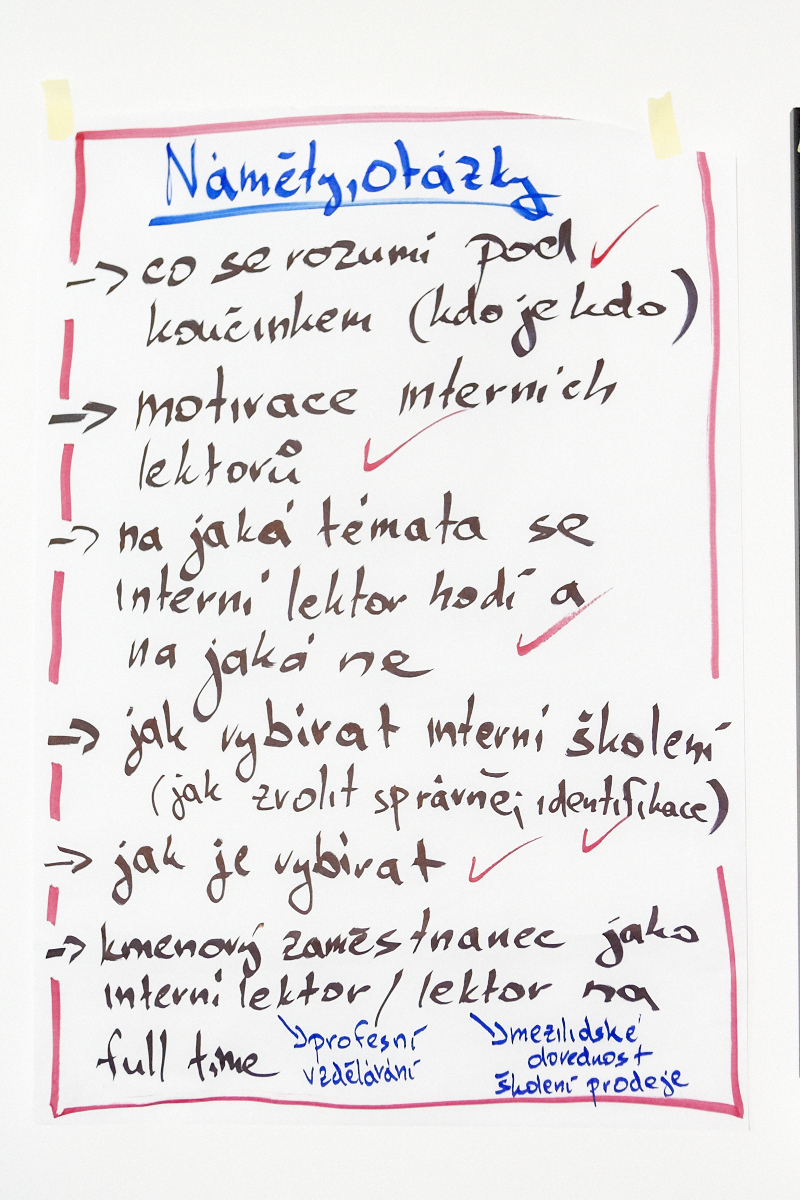 Náměty, otázky
→ co se rozumí pod
koučinkem (kdo je kdo)
→ motivace interních
lektorů
→ na jaká témata se
interní lektor hodí a
na jaká ne
→ jak vybírat interní školení
(jak zvolit správně; identifikace)
→ jak je vybírat
→ kmenový zaměstnanec jako
interní lektor / lektor na
full time
profesní
vzdělávání
mezilidské
dovednost
školení prodeje